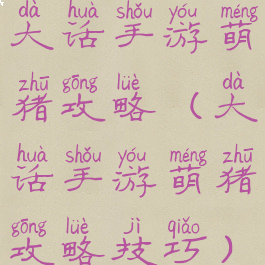 dà huà shǒu yóu méng
大话手游萌
zhū gōng lüè dà
猪攻略（大
huà shǒu yóu méng zhū
话手游萌猪
gōng lüè jì qiǎo
攻略技巧）